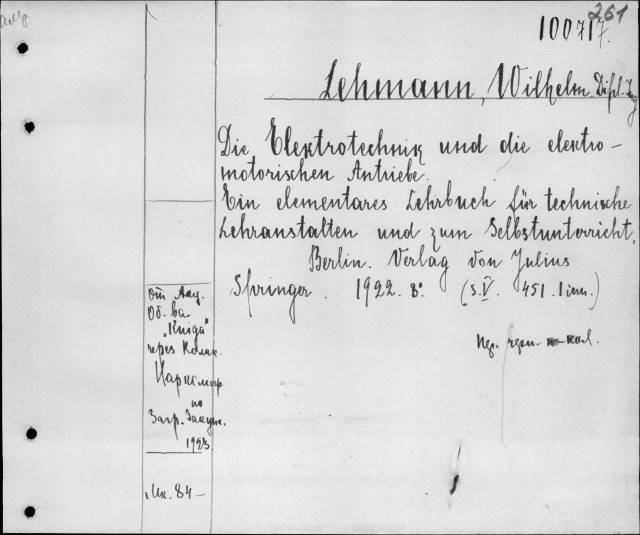 261
100717.
Lehmann, Wilhelm. Dipl. Ing
Die Elektrotechnik und die elektro-
motorischen Antriebe.
Ein elementares Lehrbuch für technische
Lehranstalten und zum Selbstunterricht.
Berlin. Verlag von Julius
Springer. 1922. 8°. (S. V. 451.
от Акц.
Об-ва
"Книга"
через
по
Загр. Закупк.
1923
84-